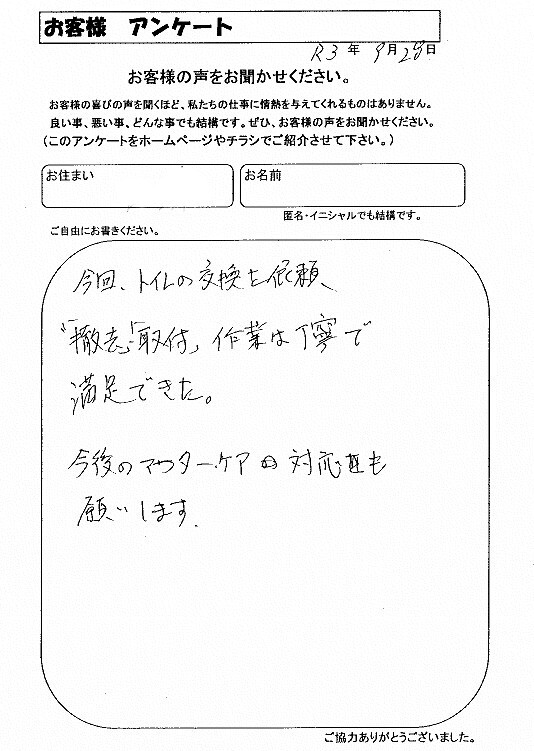 お客様 アンケート
R3 年 9月28日
お客様の声をお聞かせください。
お客様の喜びの声を聞くほど、私たちの仕事に情熱を与えてくれるものはありません。
良い事、悪い事、どんな事でも結構です。ぜひ、お客様の声をお聞かせください。
（このアンケートをホームページやチラシでご紹介させて下さい。）
お住まい
お名前
匿名・イニシャルでも結構です。
ご自由にお書きください。
今回、トイレの交換を依頼、
「撤去」「取付」作業は丁寧で
満足できた。
今後のアフターケアの対応も
願いします.
ご協力ありがとうございました。